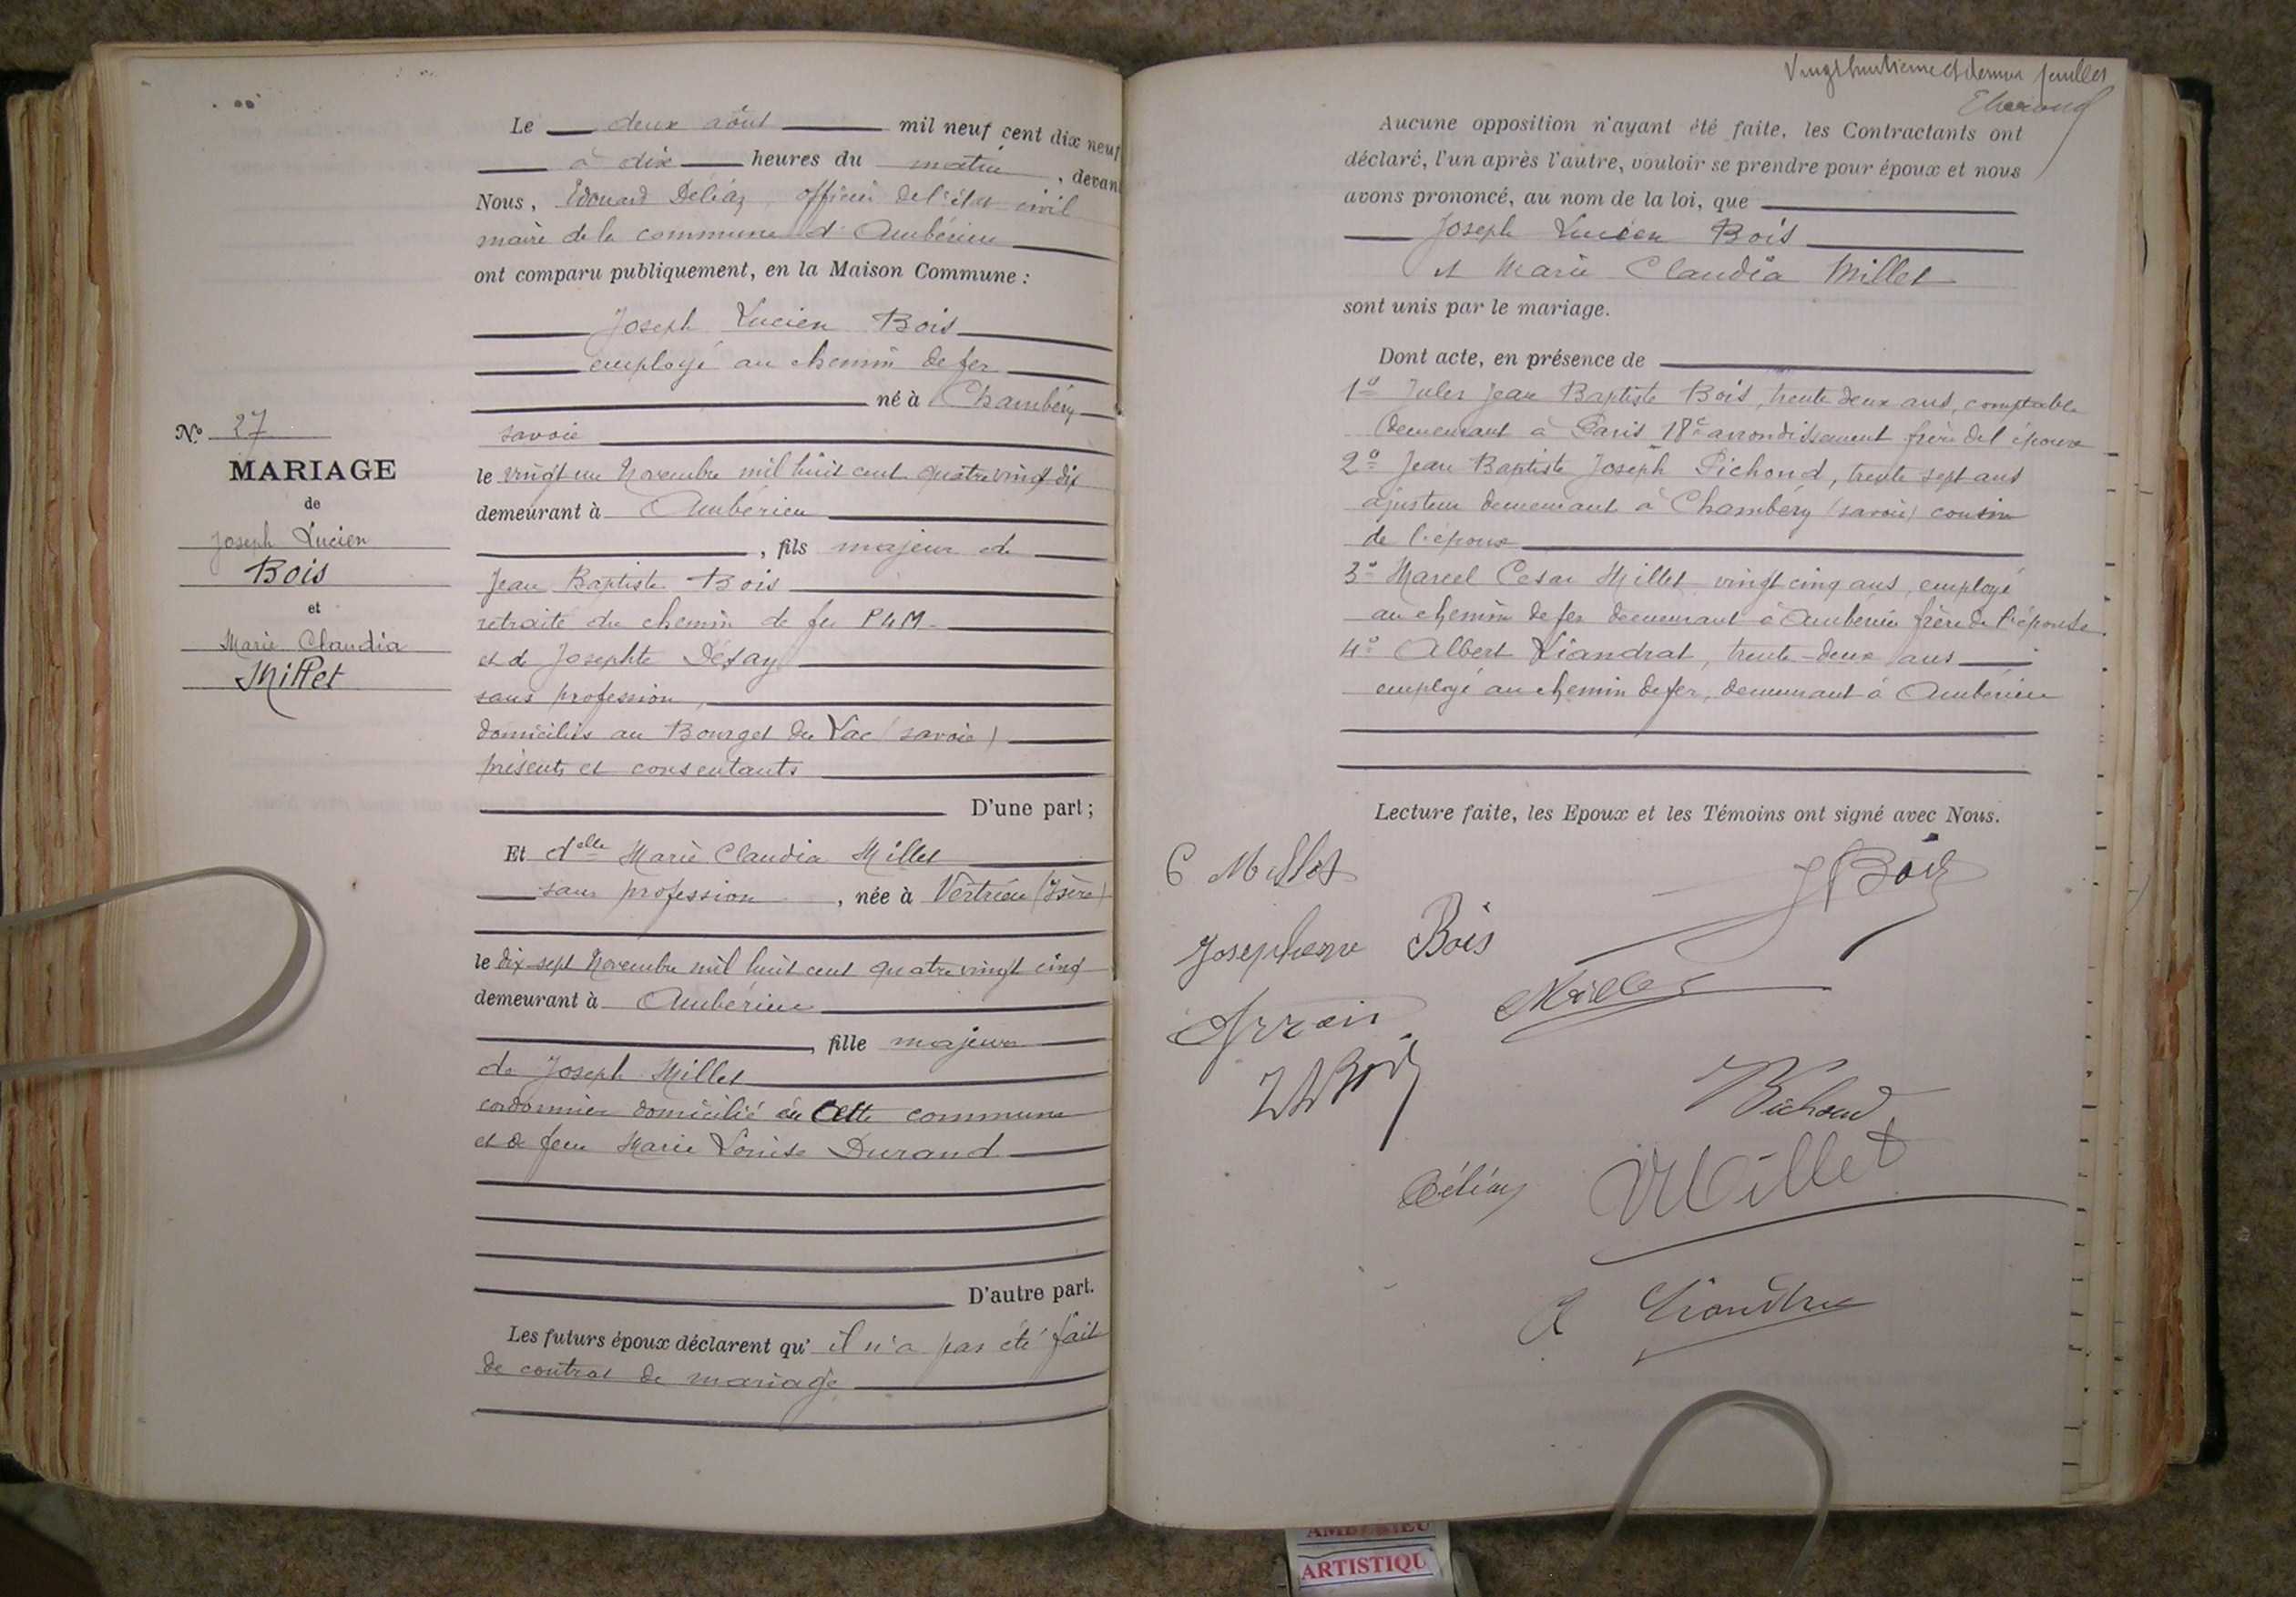 Le deux août mil neuf cent dix neuf
à dix heures du matin, devan
Nous, Edouard Déliaz officier de l'état civil
maire de la commune d'Ambérieu
ont comparu publiquement, en la Maison Commune :
Joseph Lucien Bois
employé au chemin de fer
né à Chambéry
savoie
le vingt un Novembre mil huit cent quatre vingt dix
demeurant à Ambérieu
, fils majeur de
Jean Baptiste Bois
retraité du chemin de fer PLM
et de Josephte Désay
sans profession,
domiciliés au Bourget du Lac (savoie)
présents et consentants
D'une part ;
Et delle Marie Claudia Millet
sans profession, née à Vertrieu (Isère)
le dix-sept Novembre mil huit cent quatre vingt cinq
demeurant à Ambérieu
, fille majeure
de Joseph Millet
cordonnier domicilié en cette commune
et de feue Marie Louise Durand
D'autre part.
Les futurs époux déclarent qu' il n'a pas été fait
de contrat de mariage
N.° 27
MARIAGE
de
Joseph Lucien
Bois
et
Marie Claudia
Millet
Vingt huitième et dernier feuillet
Aucune opposition n'ayant été faite, les Contractants ont
déclaré, l'un après l'autre, vouloir se prendre pour époux et nous
avons prononcé, au nom de la loi, que
Joseph Lucien Bois
et Marie Claudia Millet
sont unis par le mariage.
Dont acte, en présence de
1° Jules Jean Baptiste Bois, trente deux ans, comptable
demeurant à Paris 18e arrondissement frère de l'époux
2° Jean Baptiste Joseph Pichond, trente sept ans
ajusteur demeurant à Chambéry (savoie) cousin
de l'époux
3° Marcel Cesar Millet vingt cinq ans, employé
au chemin de fer demeurant à Ambérieu frère de l'épouse
4° Albert Liandrat, trente-deux ans
employé au chemin de fer, demeurant à Ambérieu
Lecture faite, les Epoux et les Témoins ont signé avec Nous.
C Millet
J Bois
Bois
Millet
Déliaz
Millet
A
AMBERIEU
ARTISTIQU